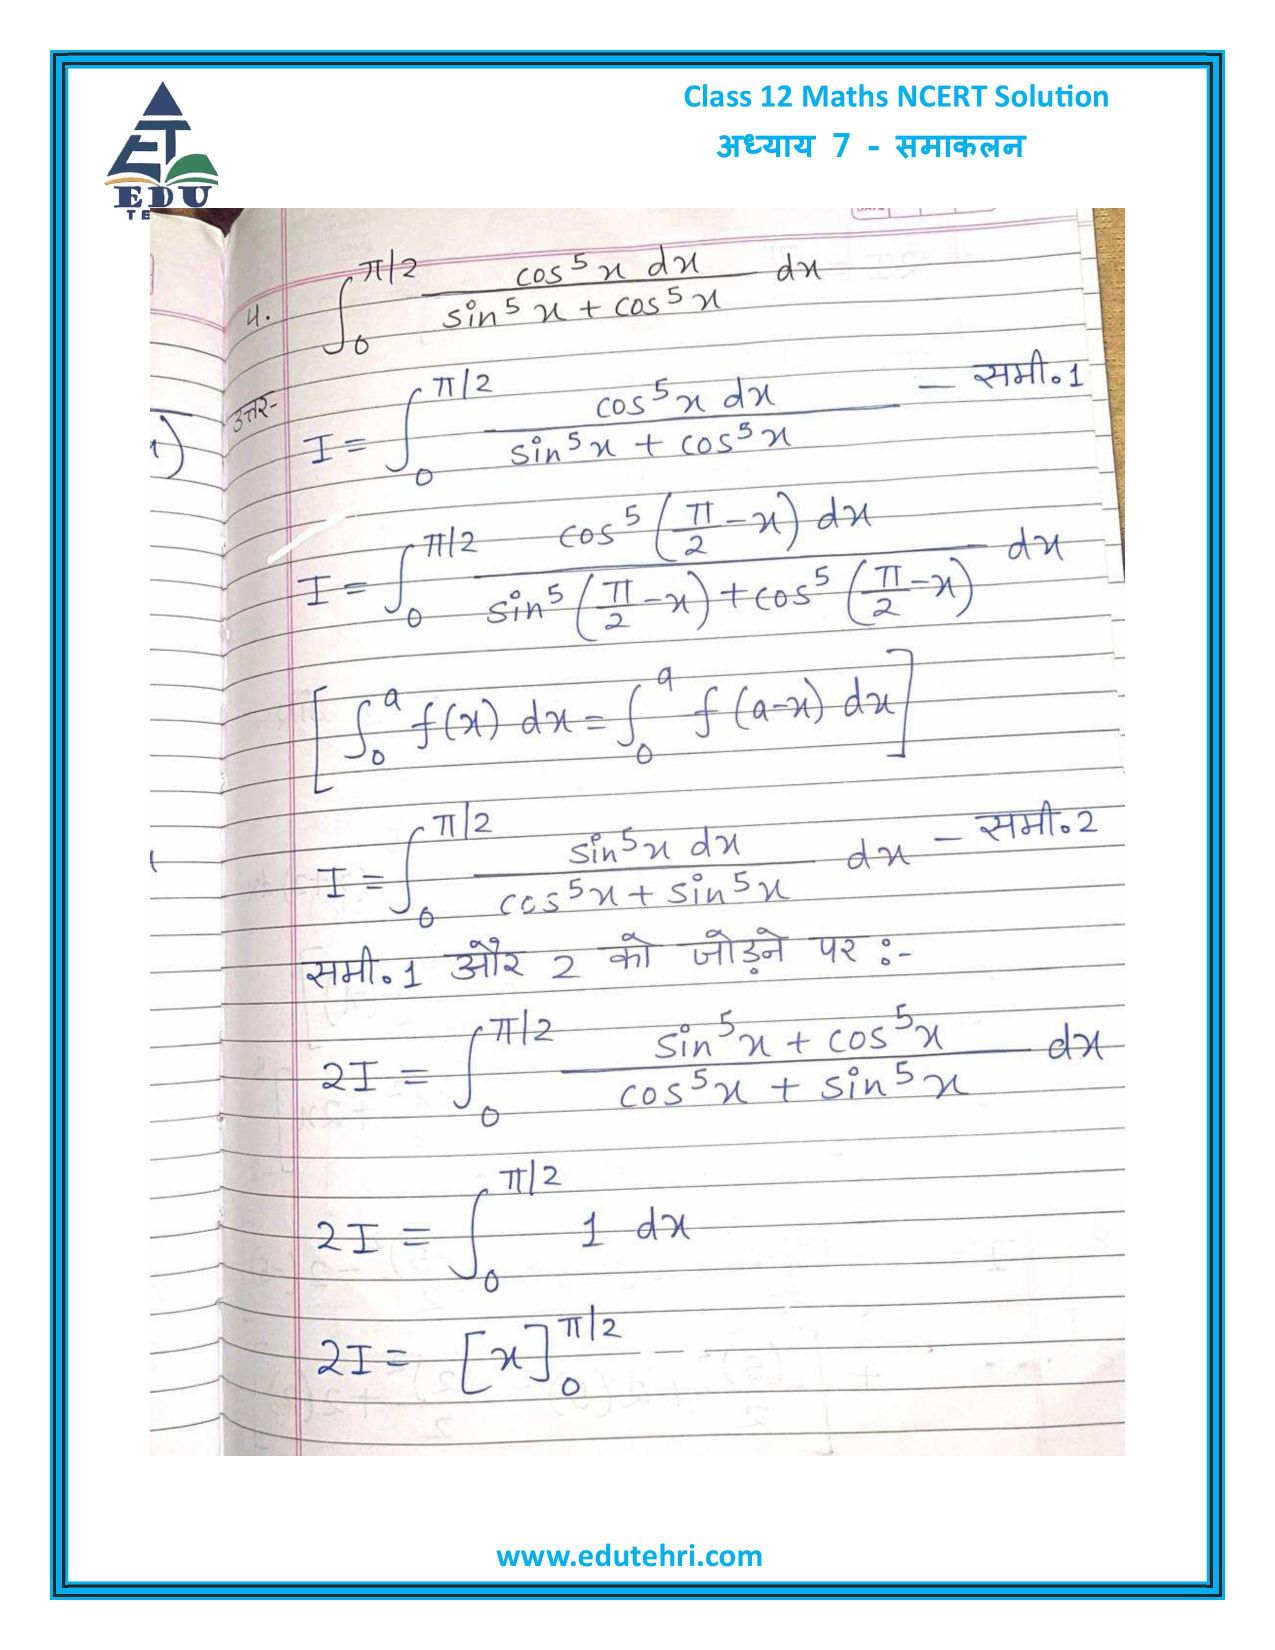 Class 12 Maths NCERT Solution
अध्याय 7 - समाकलन
ET
EDU
TE
4. ∫₀^π/2 cos⁵x dx / sin⁵x + cos⁵x dx
उत्तर-
I = ∫₀^π/2 cos⁵x dx / sin⁵x + cos⁵x - समी.1
I = ∫₀^π/2 cos⁵(π/2 - x) dx / sin⁵(π/2 - x) + cos⁵(π/2 - x) dx
[∫₀^a f(x) dx = ∫₀^a f(a-x) dx]
I = ∫₀^π/2 sin⁵x dx / cos⁵x + sin⁵x dx - समी.2
समी.1 और 2 को जोड़ने पर :-
2I = ∫₀^π/2 sin⁵x + cos⁵x / cos⁵x + sin⁵x dx
2I = ∫₀^π/2 1 dx
2I = [x]₀^π/2
www.edutehri.com